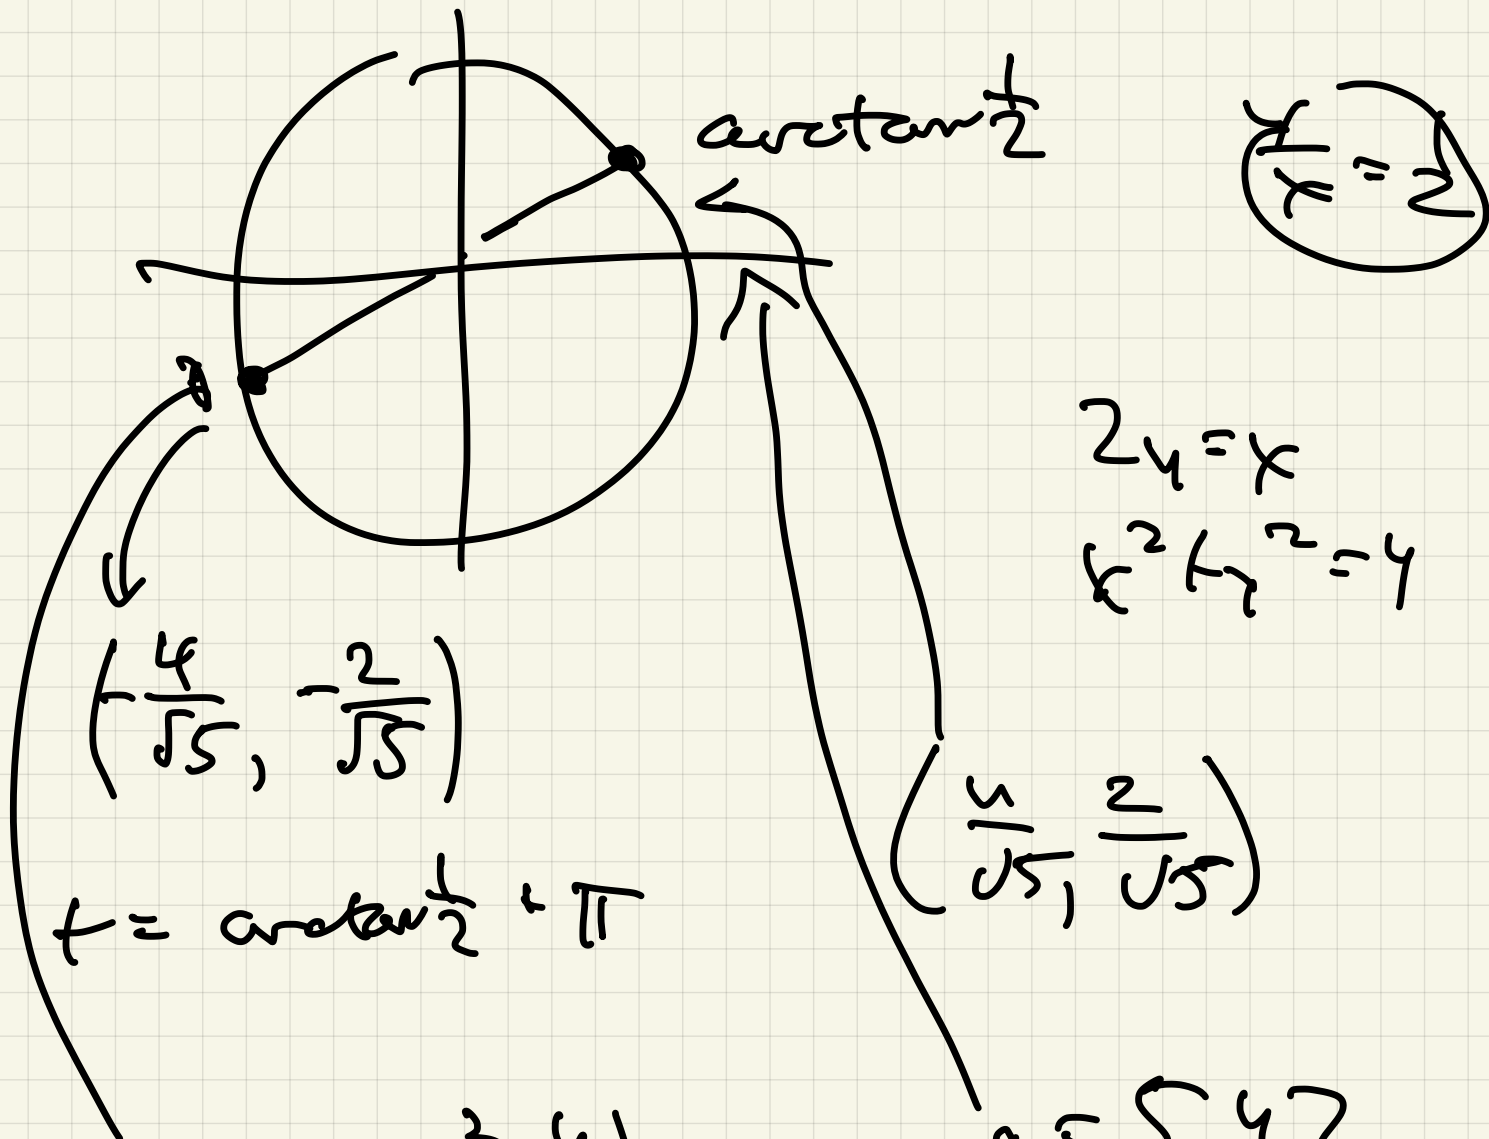 arctan 1/2
y/x = 2
2y = x
x² + y² = 4
(-4/√5, -2/√5)
(4/√5, 2/√5)
t = arctan 1/2 + π